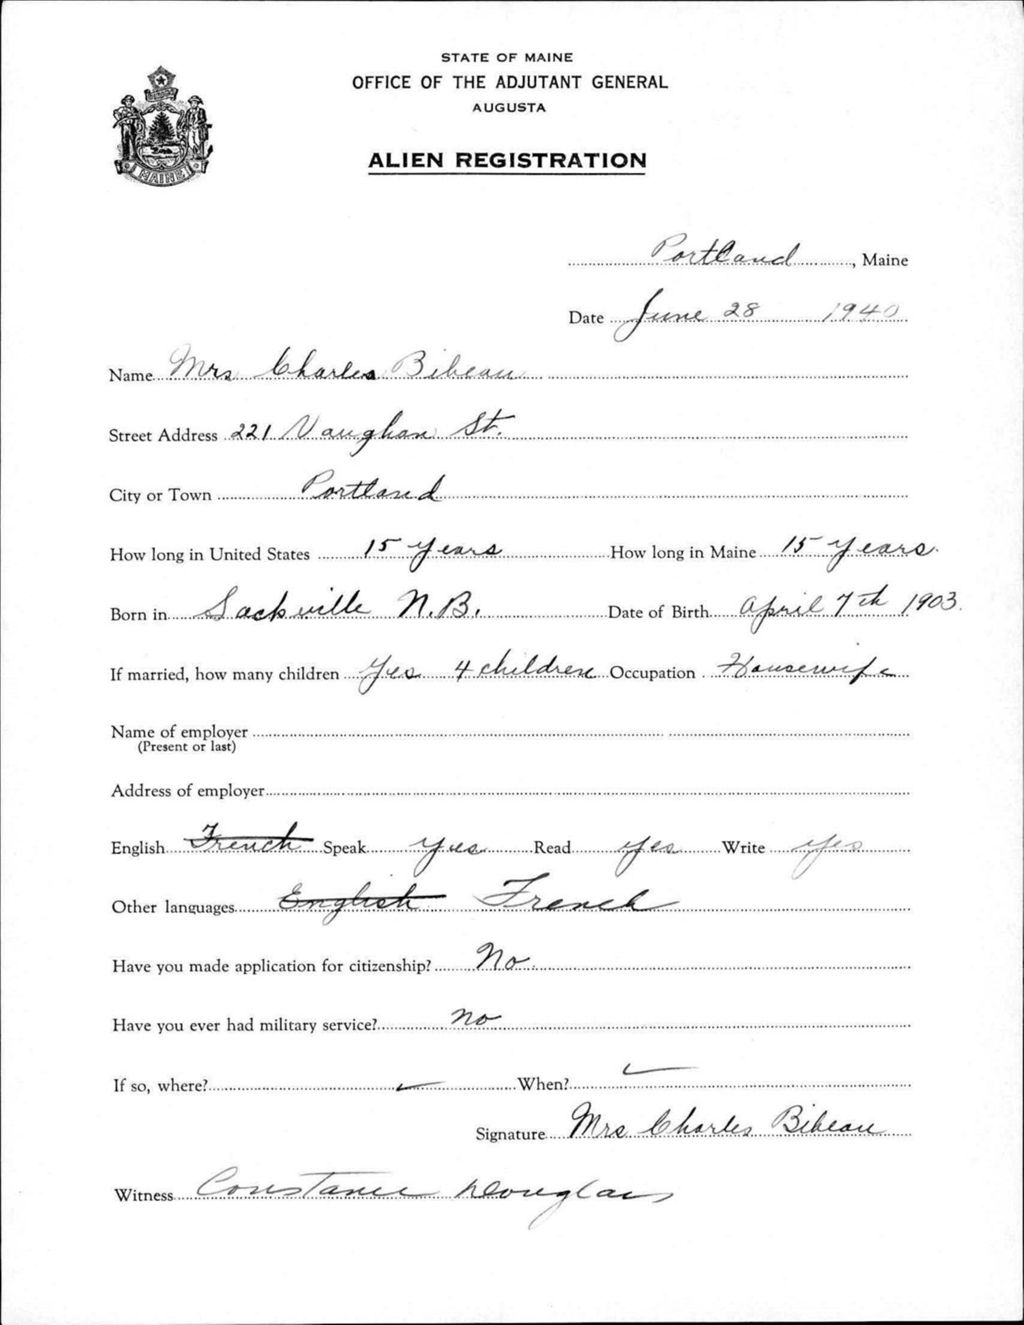 STATE OF MAINE
OFFICE OF THE ADJUTANT GENERAL
AUGUSTA
ALIEN REGISTRATION
MAINE
Portland, Maine
Date June 28 1940
Name Mrs Charles Bibeau
Street Address 221 Vaughan St.
City or Town Portland
How long in United States 15 years How long in Maine 15 years.
Born in Sackville N.B. Date of Birth April 7th 1903.
If married, how many children Yes 4 children Occupation Housewife
Name of employer
(Present or last)
Address of employer
English French Speak yes Read yes Write yes
Other languages English French
Have you made application for citizenship? No.
Have you ever had military service? no
If so, where? When?
Signature Mrs Charles Bibeau
Witness Constance Douglas